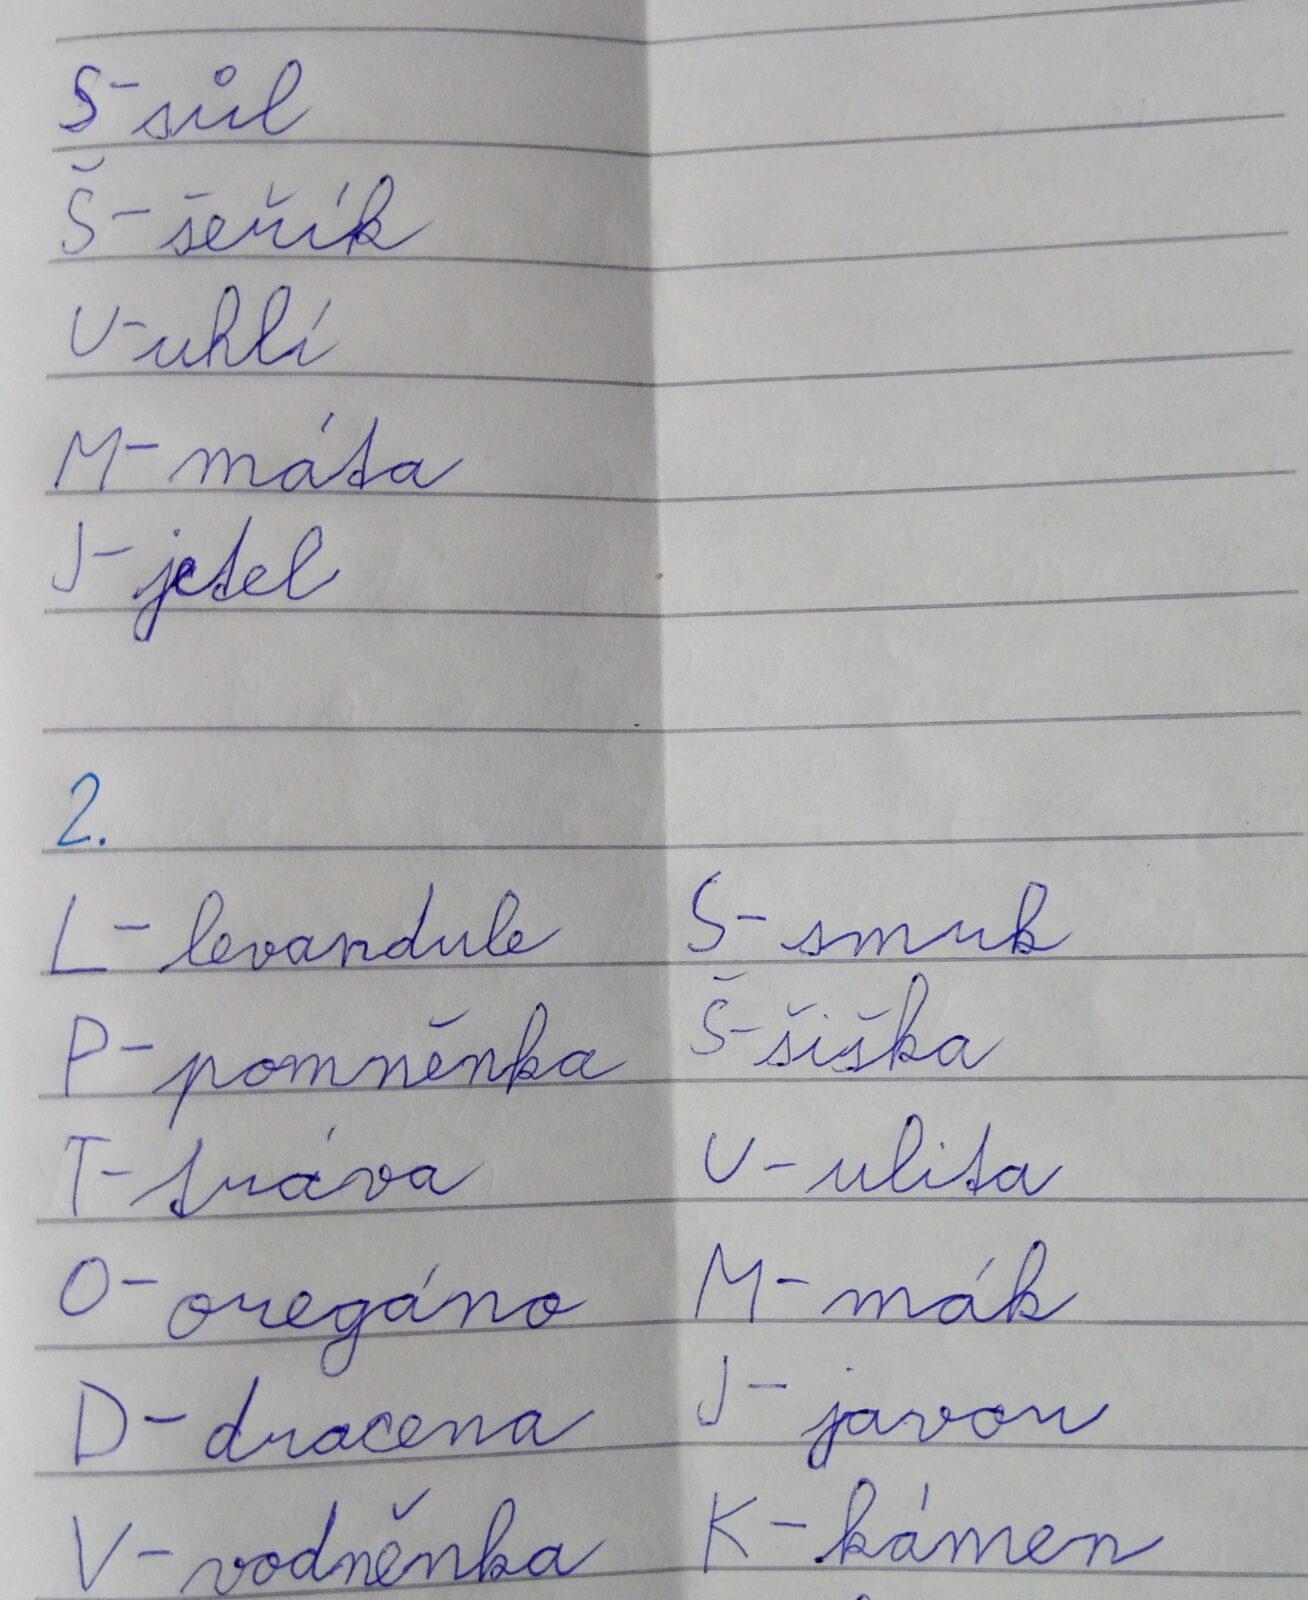 S- sůl
Š- šeřík
U- uhlí
M- máta
J- jetel
2.
L- levandule
P- pomněnka
T- tráva
O- oregáno
D- dracena
V- vodněnka
S- smrk
Š- šiška
U- ulita
M- mák
J- javor
K- kámen